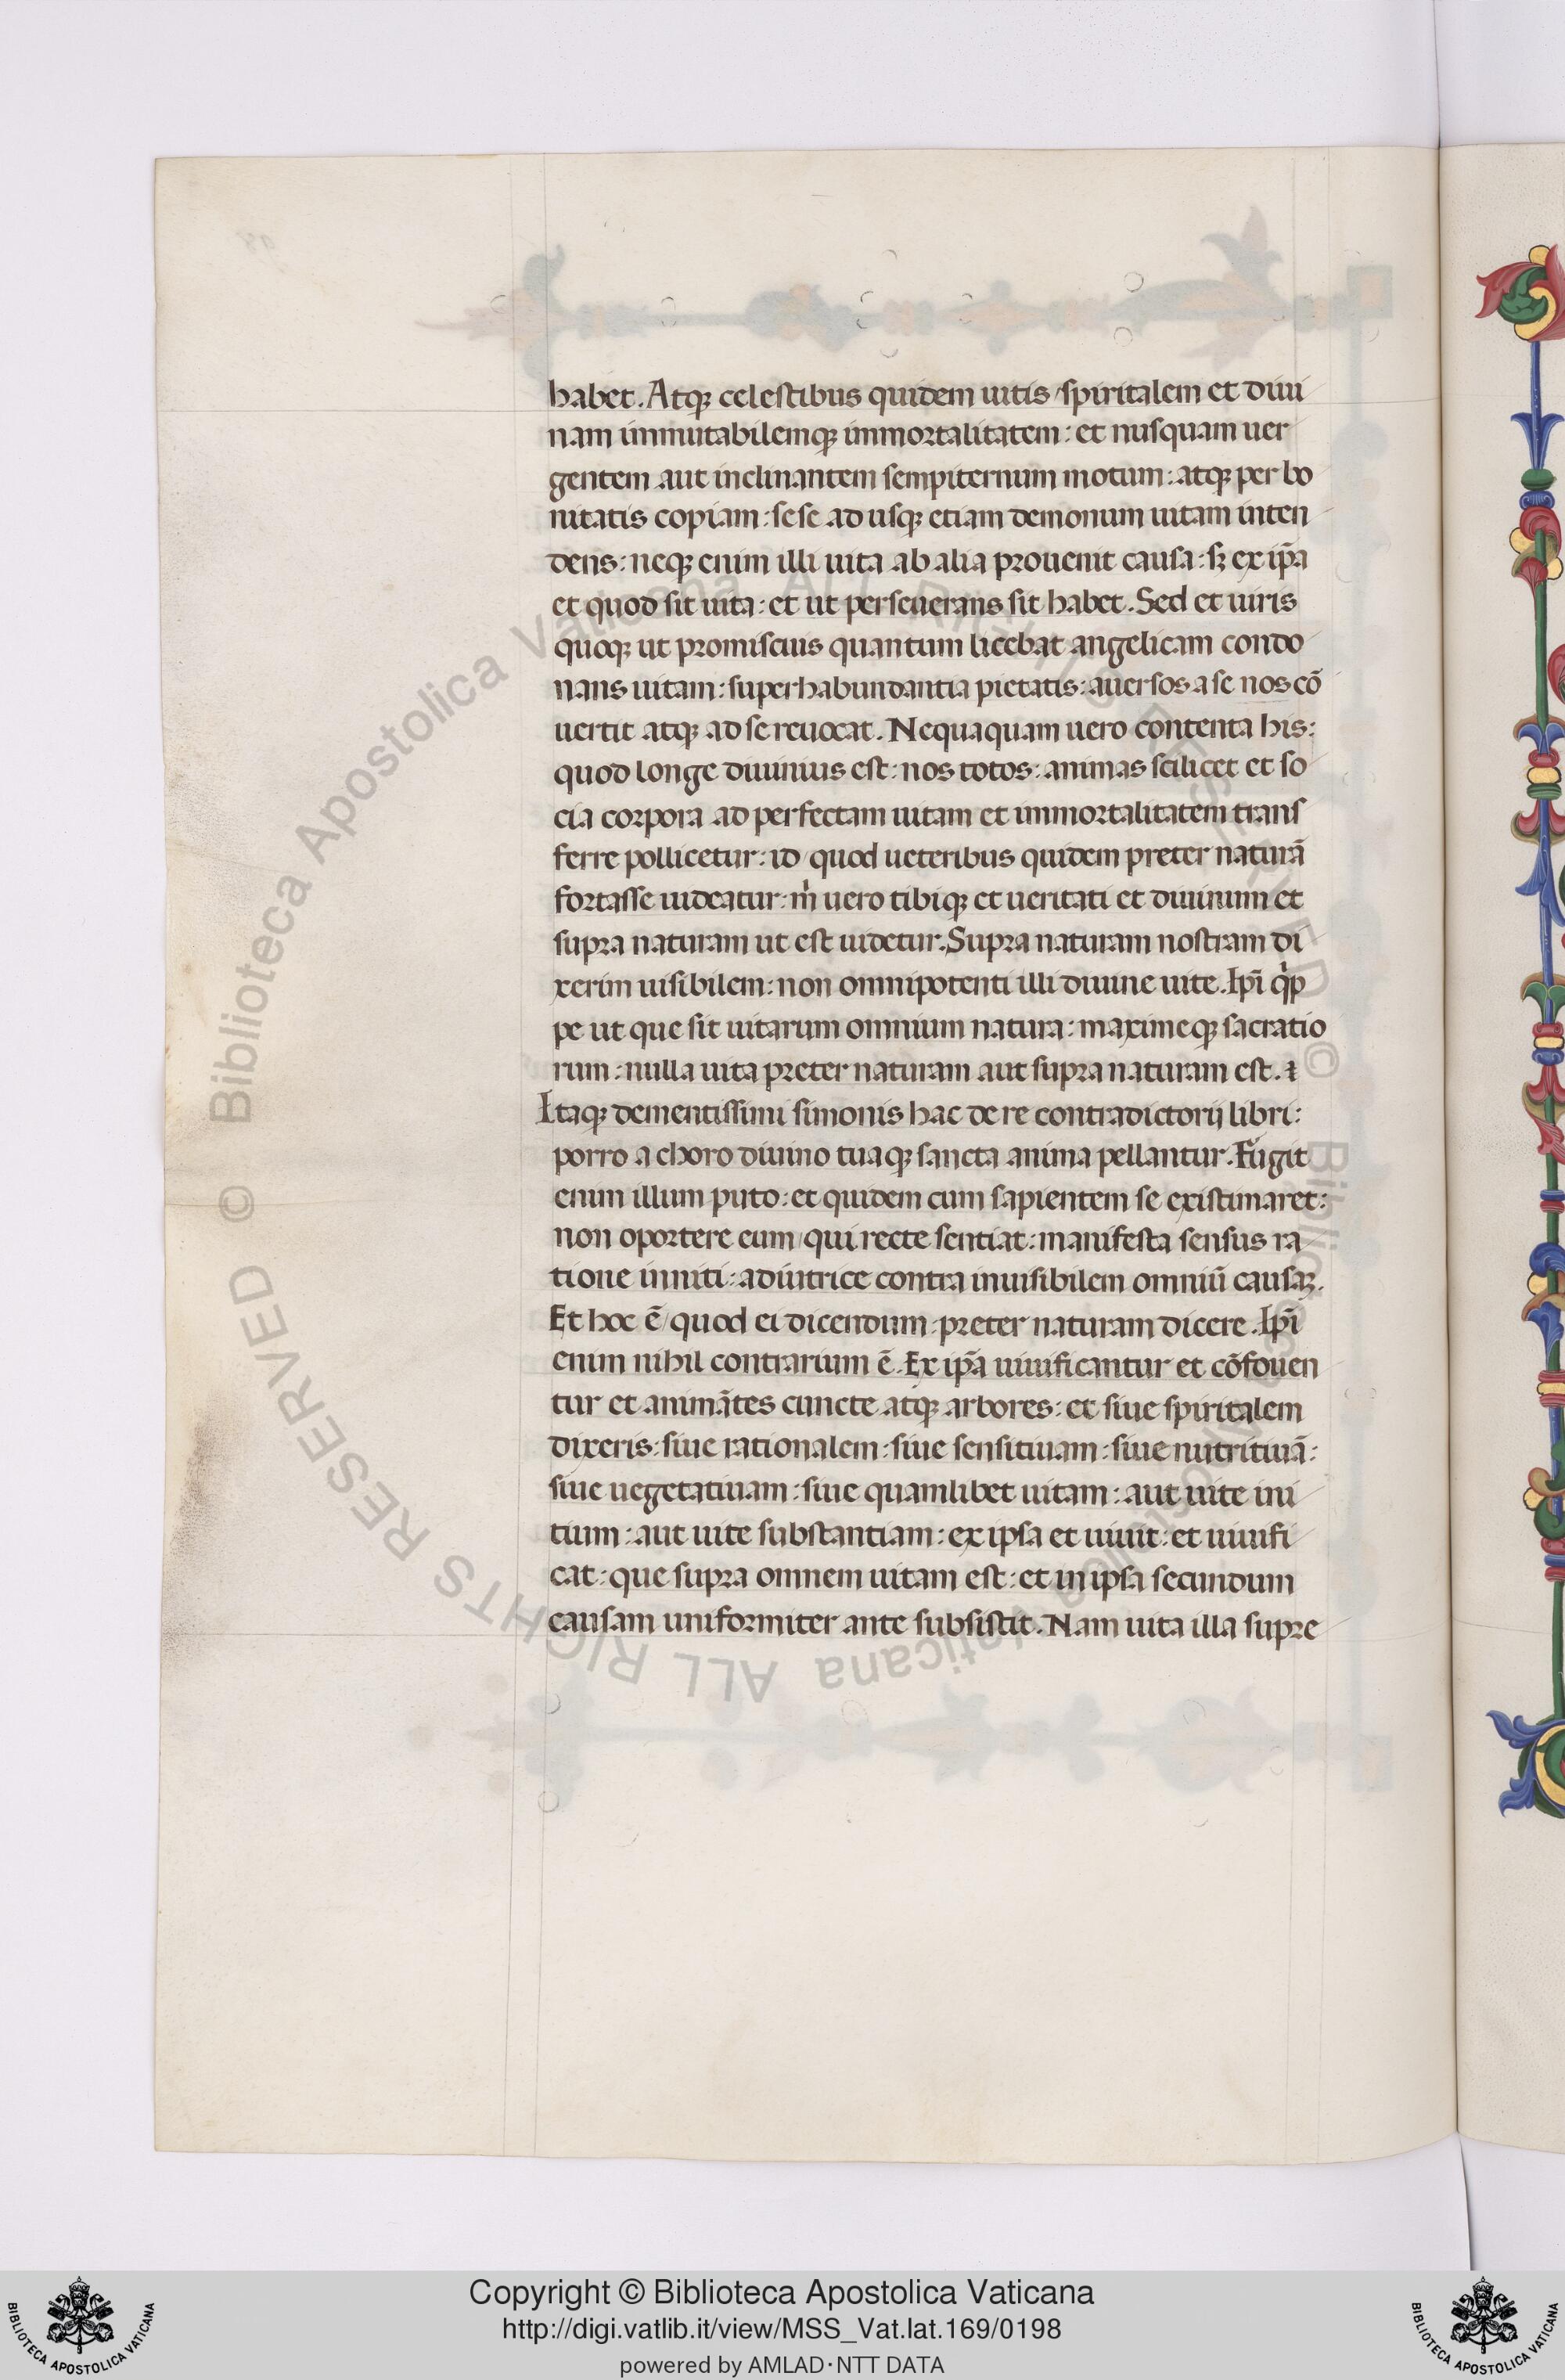 habet. Atqꝫ celestibus quidem uitis / spiritalem et diui
nam immutabilemqꝫ immortalitatem : et nusquam uer
gentem aut inclinantem sempiternum motum : atqꝫ per bo
nitatis copiam : sese ad usqꝫ etiam demonum uitam inten
dens : neqꝫ enim illi uita ab alia prouenit causa : sꝫ ex ip̃a
et quod sit uita : et ut perseuerans sit habet. Sed et uiris
quoqꝫ ut promiscuis quantum licebat angelicam condo
nans uitam : superhabundantia pietatis : auersos a se nos cõ
uertit atqꝫ ad se reuocat. Nequaquam uero contenta his :
quod longe diuinius est : nos totos : animas scilicet et so
cia corpora ad perfectam uitam et immortalitatem trans
ferre pollicetur : id / quod ueteribus quidem preter naturã
fortasse uideatur : m̍ uero tibiqꝫ et ueritati et diuinum et
supra naturam ut est uidetur. Supra naturam nostram di
xerim uisibilem : non omnipotenti illi diuine uite. Ip̃i q̍p
pe ut que sit uitarum omnium natura : maximeqꝫ sacratio
rum : nulla uita preter naturam aut supra naturam est.
Itaqꝫ dementissimi simonis hac de re contradictorij libri :
porro a choro diuino tuaqꝫ sancta anima pellantur. Fugit
enim illum puto : et quidem cum sapientem se existimaret :
non oportere eum / qui recte sentiat : manifesta sensus ra
tione inniti : adiutrice contra inuisibilem omniũ causaꝫ.
Et hoc ẽ / quod ei dicendum preter naturam dicere. Ip̃i
enim nihil contrarium ẽ. Ex ip̃a uiuificantur et cõfouen
tur et animãtes cuncte atqꝫ arbores : et siue spiritalem
dixeris : siue rationalem : siue sensitiuam : siue nutritiuã :
siue uegetatiuam : siue quamlibet uitam : aut uite ini
tium : aut uite substantiam : ex ipsa et uiuit : et uiuifi
cat : que supra omnem uitam est : et in ipsa secundum
causam uniformiter ante subsistit. Nam uita illa supre
© Biblioteca Apostolica Vaticana ALL RIGHTS RESERVED
© Biblioteca Apostolica Vaticana ALL RIGHTS RESERVED
BIBLIOTECA APOSTOLICA VATICANA
Copyright © Biblioteca Apostolica Vaticana
http://digi.vatlib.it/view/MSS_Vat.lat.169/0198
powered by AMLAD·NTT DATA
BIBLIOTECA APOSTOLICA VATICANA